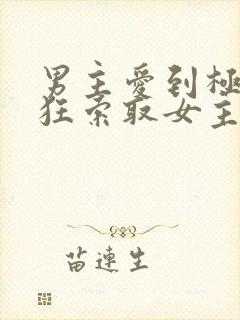 男主愛到極
狂索取女主
苗連生